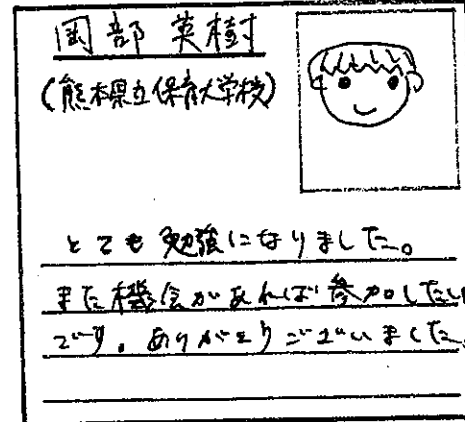 岡部 英樹
(熊本県立保育大学校)
とても勉強になりました。
また機会があれば参加したい
です。ありがとうございました。